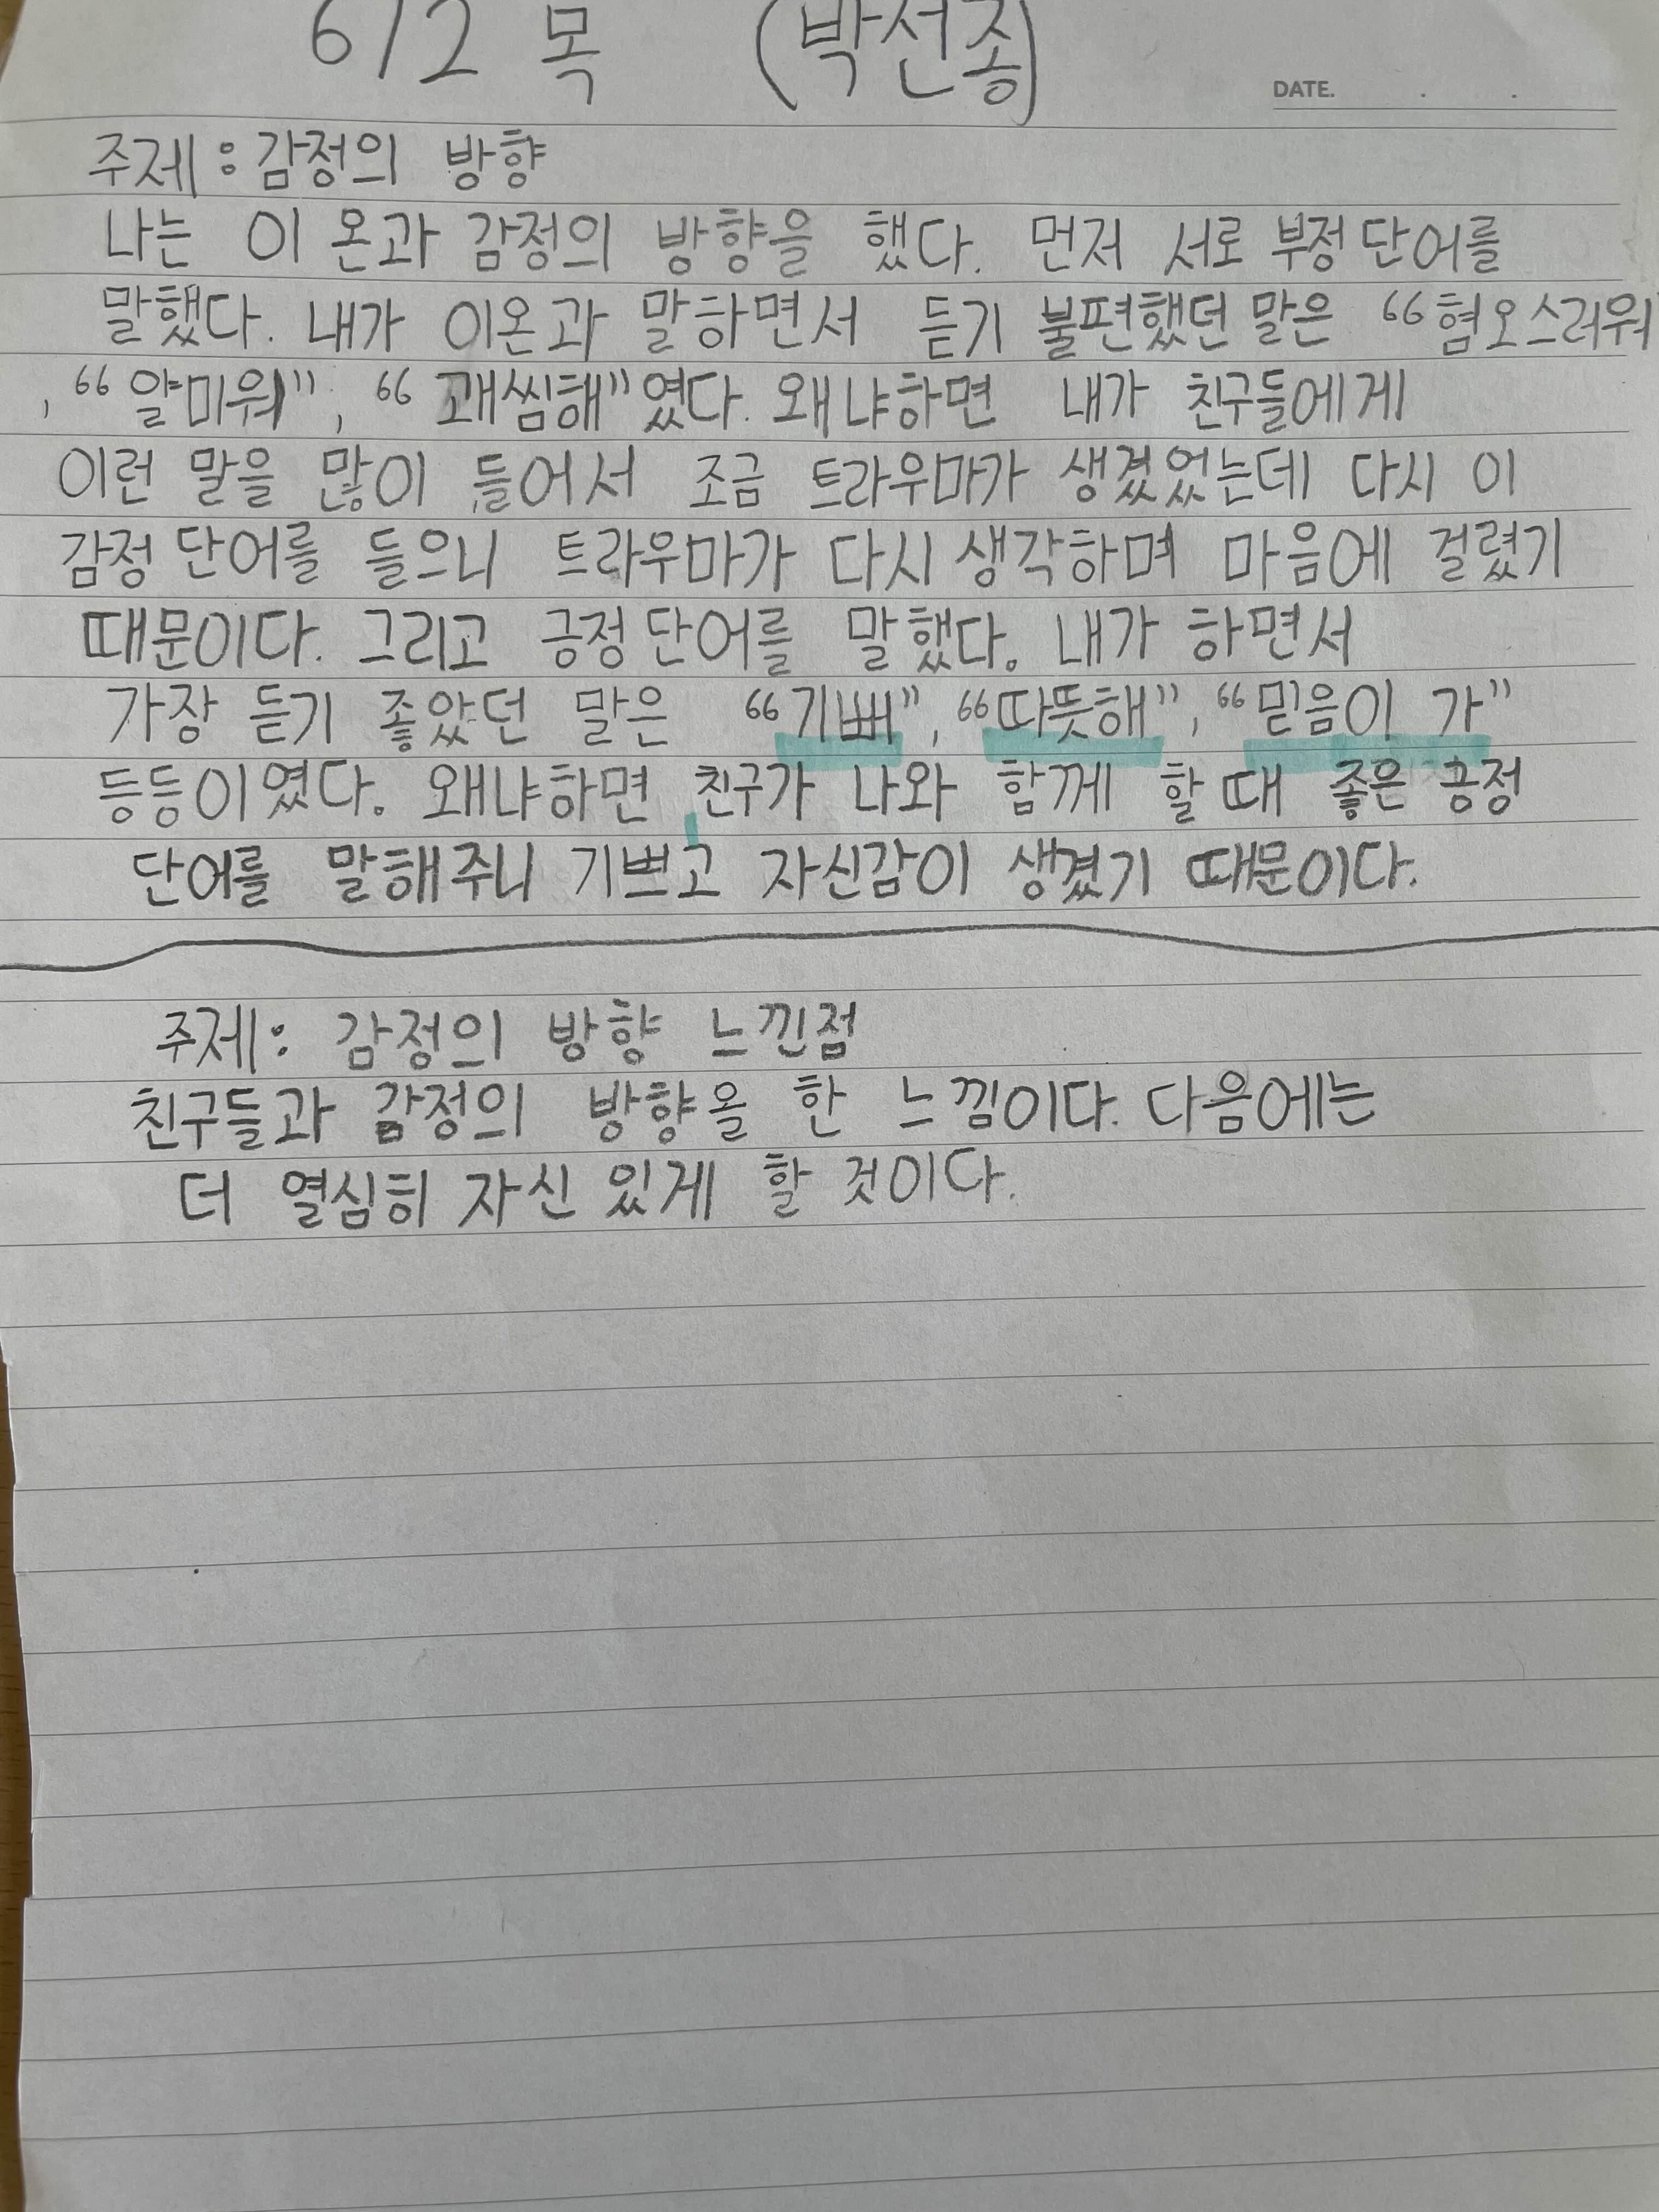 6/2 목 (박선종)
DATE. . .
주제 : 감정의 방향
나는 이온과 감정의 방향을 했다. 먼저 서로 부정 단어를
말했다. 내가 이온과 말하면서 듣기 불편했던 말은 “혐오스러워
, “얄미워”, “괘씸해”였다. 왜냐하면 내가 친구들에게
이런 말을 많이 들어서 조금 트라우마가 생겼었는데 다시 이
감정 단어를 들으니 트라우마가 다시 생각하며 마음에 걸렸기
때문이다. 그리고 긍정 단어를 말했다. 내가 하면서
가장 듣기 좋았던 말은 “기뻐”, “따뜻해”, “믿음이 가”
등등이였다. 왜냐하면 친구가 나와 함께 할 때 좋은 긍정
단어를 말해주니 기쁘고 자신감이 생겼기 때문이다.
주제: 감정의 방향 느낀점
친구들과 감정의 방향을 한 느낌이다. 다음에는
더 열심히 자신 있게 할 것이다.